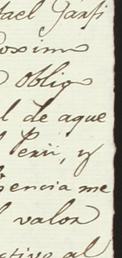 fael Garfi
oximo
oblig
l de aque
Perú, y
sencia me
l valor
ctivo al